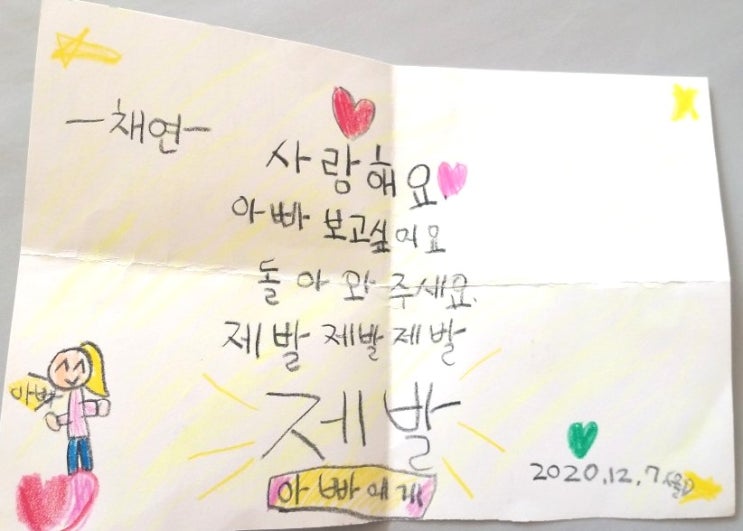 -채연-
사랑해요
아빠 보고싶어요
돌아와주세요.
제발 제발 제발
제발
아빠
아빠에게
2020.12.7(월)